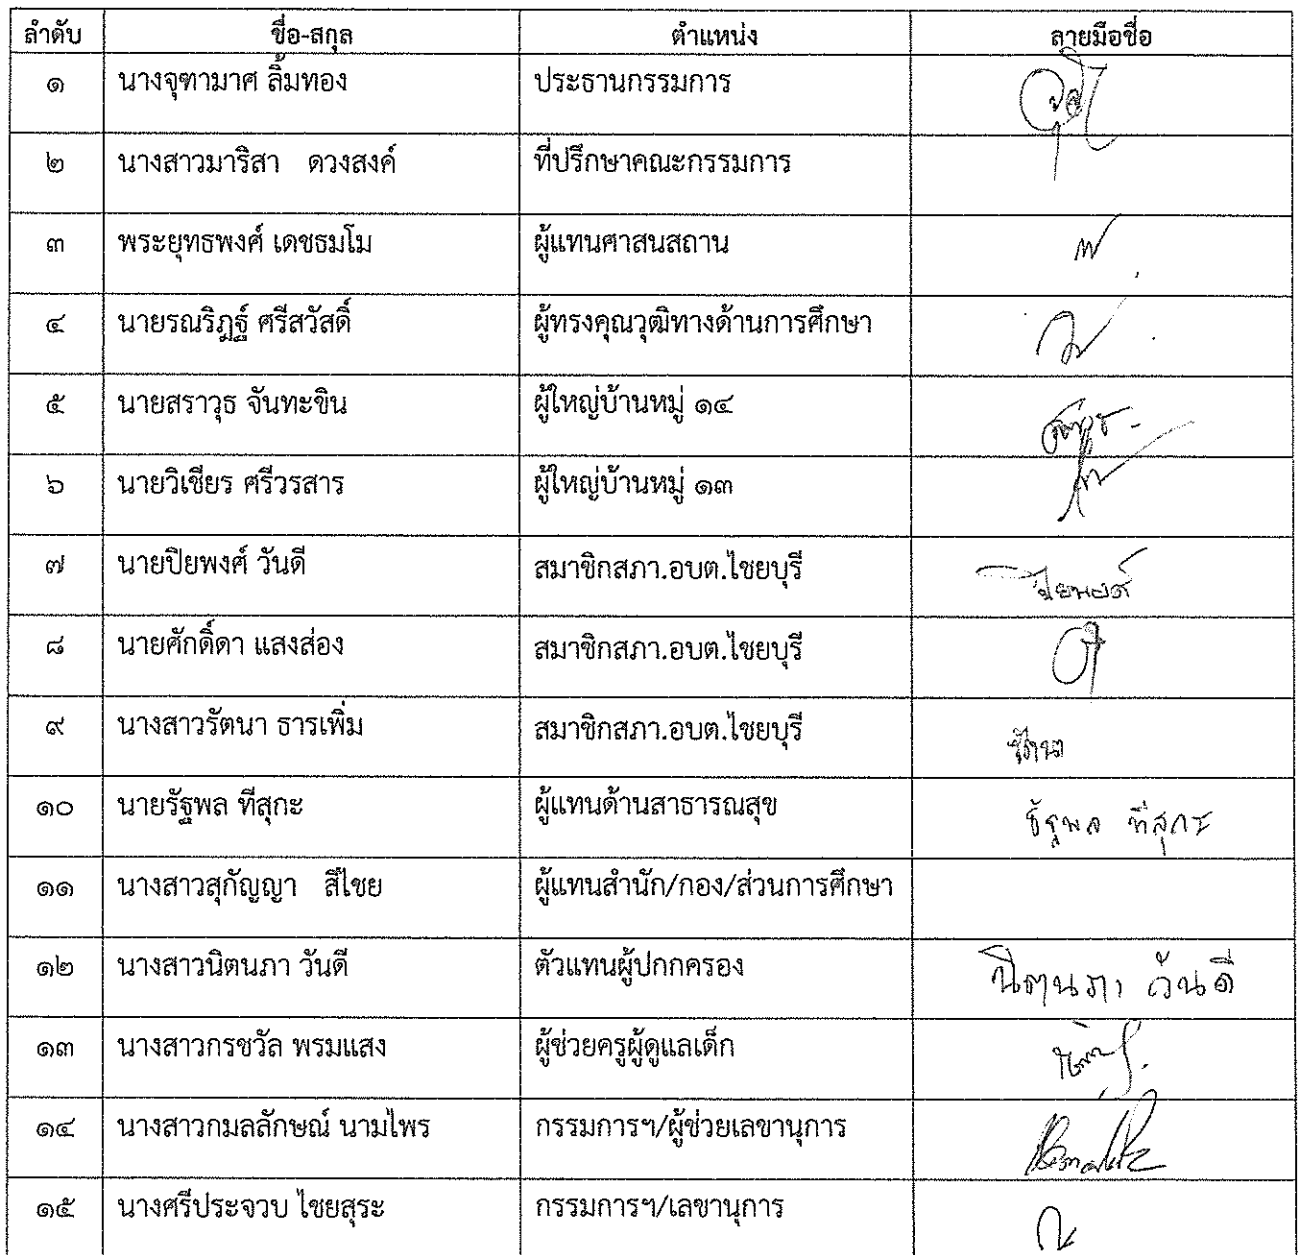 ลำดับ ชื่อ-สกุล ตำแหน่ง ลายมือชื่อ
๑ นางจุฑามาศ ลิ้มทอง ประธานกรรมการ
๒ นางสาวมาริสา ดวงสงค์ ที่ปรึกษาคณะกรรมการ
๓ พระยุทธพงศ์ เดชธมโม ผู้แทนศาสนสถาน
๔ นายรณริฎฐ์ ศรีสวัสดิ์ ผู้ทรงคุณวุฒิทางด้านการศึกษา
๕ นายสราวุธ จันทะขิน ผู้ใหญ่บ้านหมู่ ๑๔
๖ นายวิเชียร ศรีวรสาร ผู้ใหญ่บ้านหมู่ ๑๓
๗ นายปิยพงศ์ วันดี สมาชิกสภา.อบต.ไชยบุรี ปิยพงศ์
๘ นายศักดิ์ดา แสงส่อง สมาชิกสภา.อบต.ไชยบุรี
๙ นางสาวรัตนา ธารเพิ่ม สมาชิกสภา.อบต.ไชยบุรี รัตนา
๑๐ นายรัฐพล ทีสุกะ ผู้แทนด้านสาธารณสุข รัฐพล ทีสุกะ
๑๑ นางสาวสุกัญญา สีไชย ผู้แทนสำนัก/กอง/ส่วนการศึกษา
๑๒ นางสาวนิตนภา วันดี ตัวแทนผู้ปกกครอง นิตนภา วันดี
๑๓ นางสาวกรชวัล พรมแสง ผู้ช่วยครูผู้ดูแลเด็ก
๑๔ นางสาวกมลลักษณ์ นามไพร กรรมการฯ/ผู้ช่วยเลขานุการ
๑๕ นางศรีประจวบ ไชยสุระ กรรมการฯ/เลขานุการ